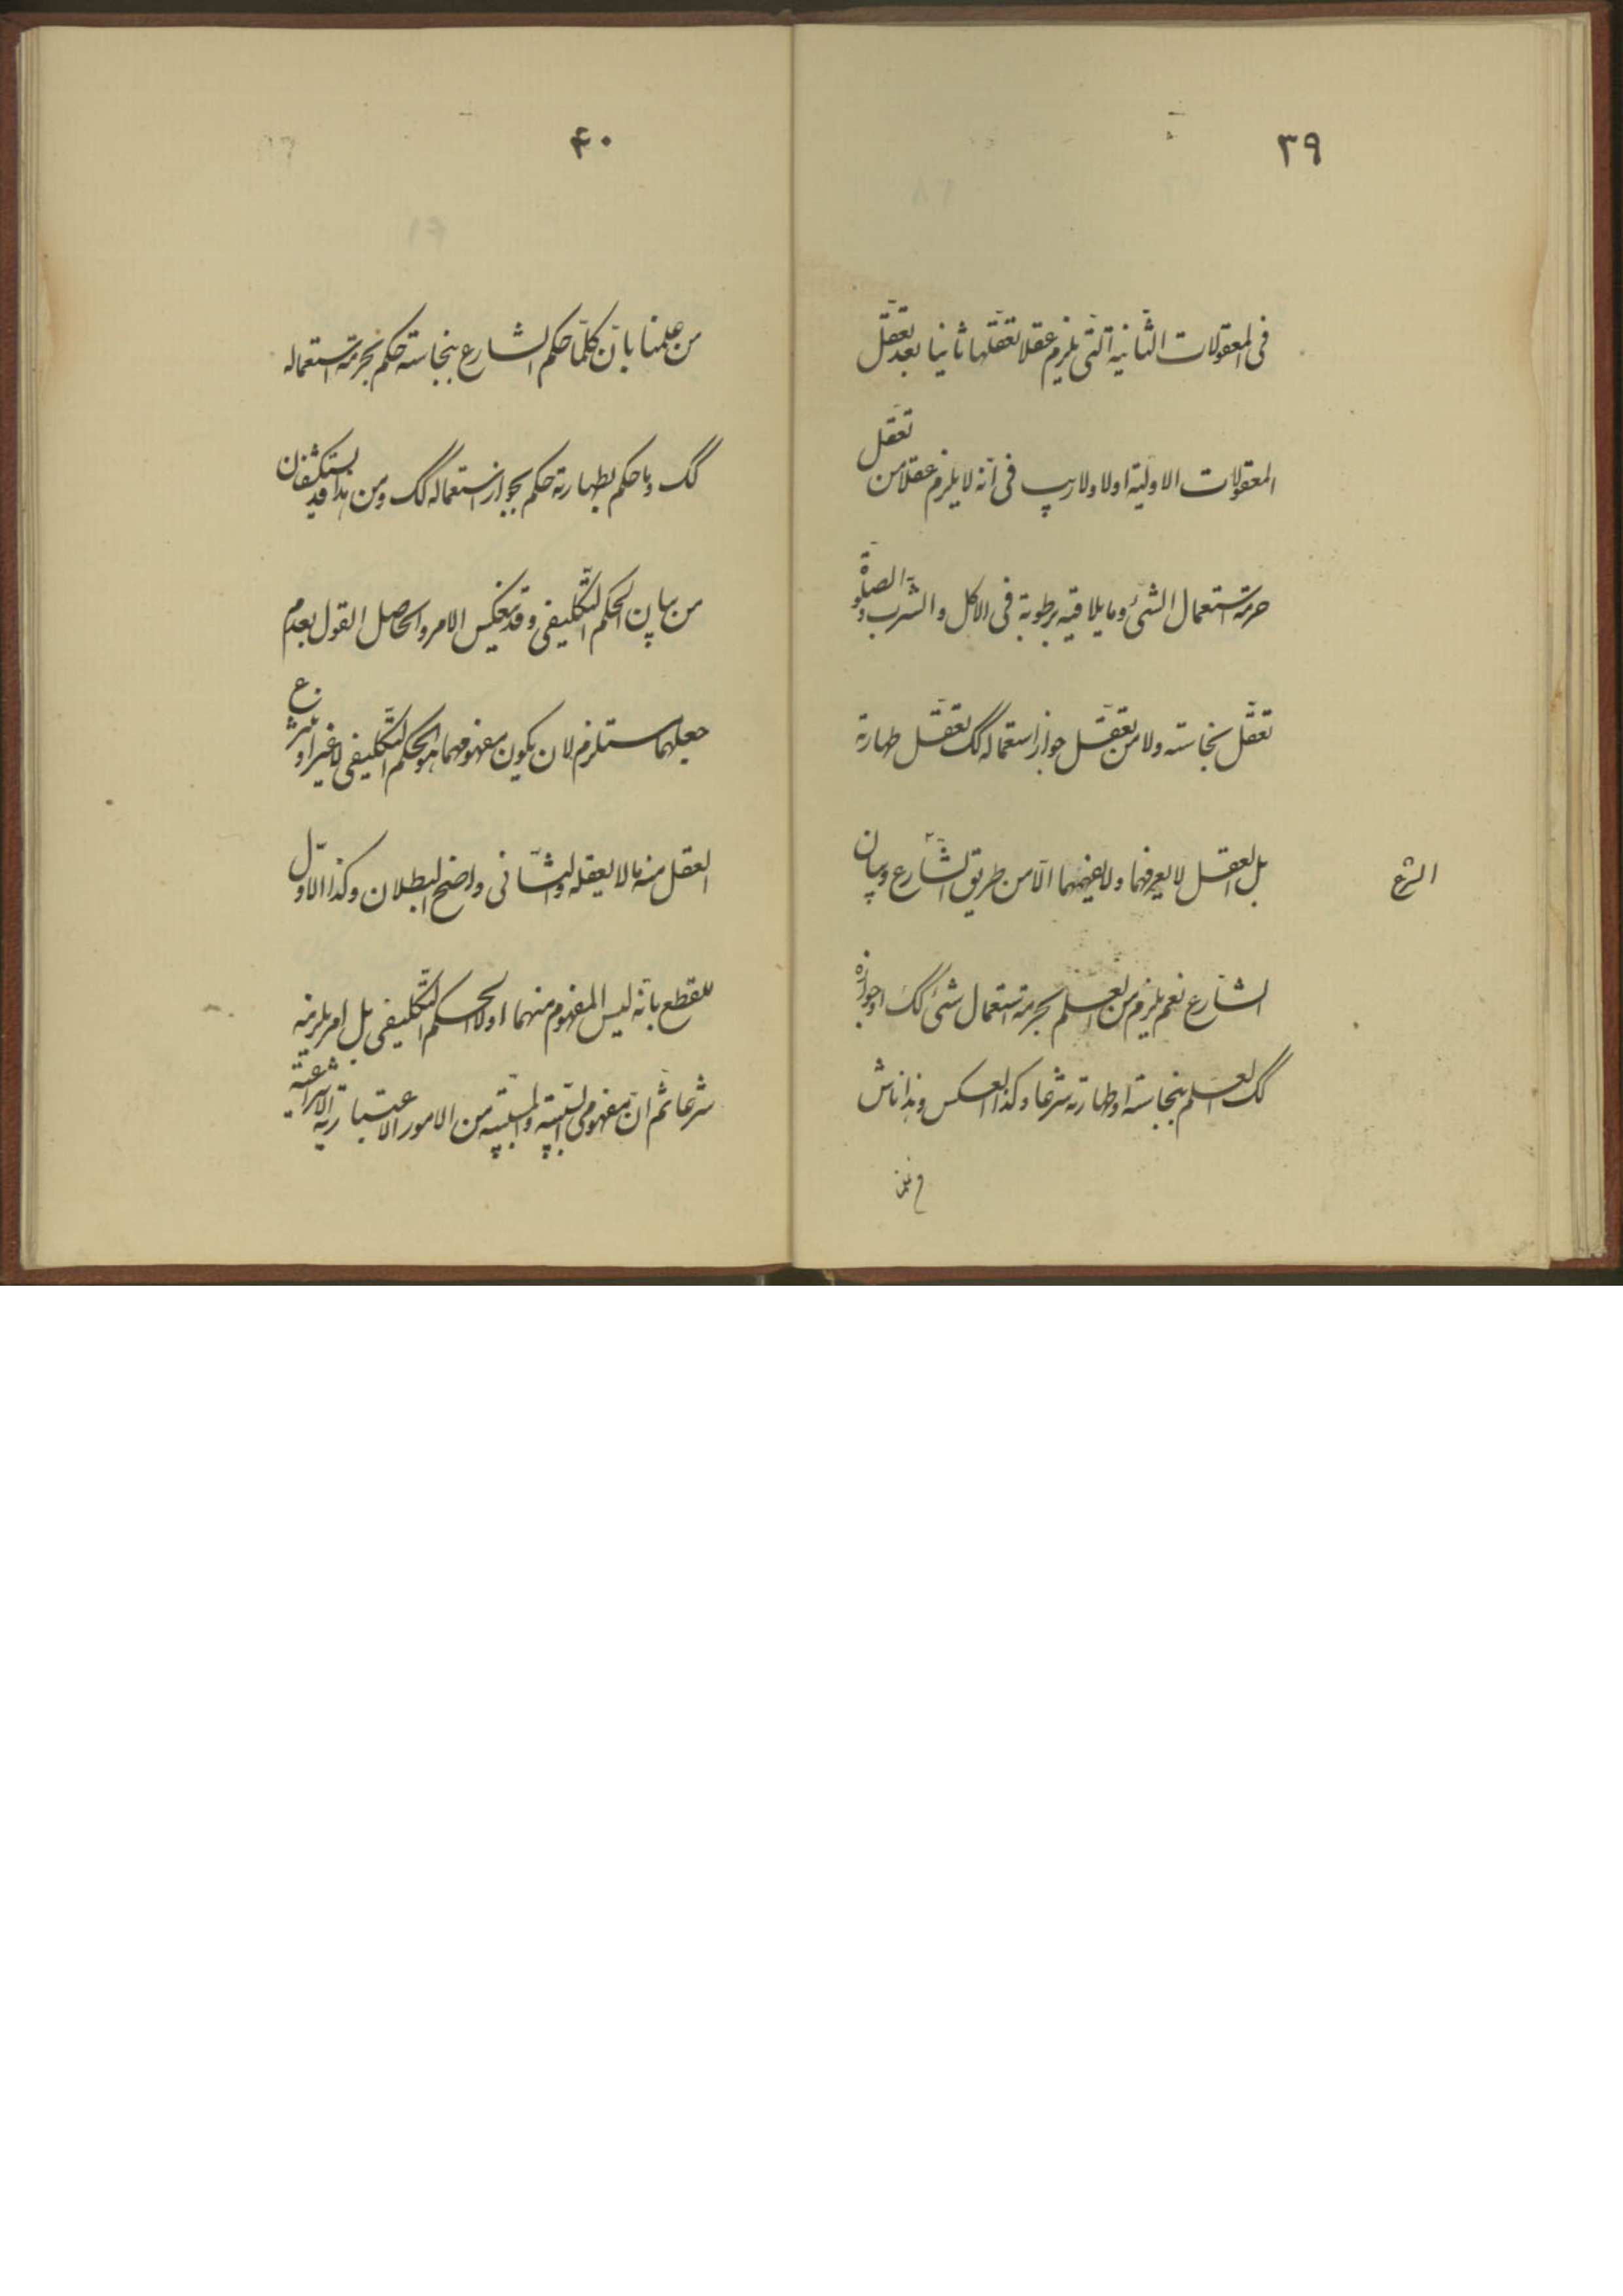 ٣٩
فى المعقولات الثّانية الّتى يلزم عقلا تعقّلها ثانيا بعد تعقّل
المعقولات الاوليّة اولا ولا ريب فى انّه لا يلزم عقلا من تعقّل
حرمة استعمال الشّئ وما يلاقيه برطوبة فى الاكل والشّرب والصلوة
تعقّل نجاسته ولا من تعقّل جواز استعماله كك تعقّل طهارته
بل العقل لا يعرفهما ولا يفهمهما الّا من طريق الشّارع وبيان
الشرع
الشّارع نعم يلزم من العلم بحرمة استعمال شئ كك او جوازه
كك العلم بنجاسته او طهارته شرعا وكذا العكس وهذا ناش
من علمنا
٤٠
من علمنا بانّ كلّما حكم الشارع بنجاسته حكم بحرمة استعماله
كك وما حكم بطهارته حكم بجواز استعماله كك ومن هذا قد يستكشفان
من بيان الحكم التّكليفى وقد ينعكس الامر والحاصل القول بعدم
جعلهما مستلزم لان يكون مفهومهما هو الحكم التّكليفى لا غير او انتزع
العقل منه ما لا يعقله والثّانى واضح البطلان وكذا الاوّل
للقطع بانّه ليس المفهوم منهما اولا الحكم التّكليفى بل امر يلزمه
شرعا ثم انّ مفهومى السّببيّة والمسبّبيّة من الامور الاعتبارية الانتزاعيّة